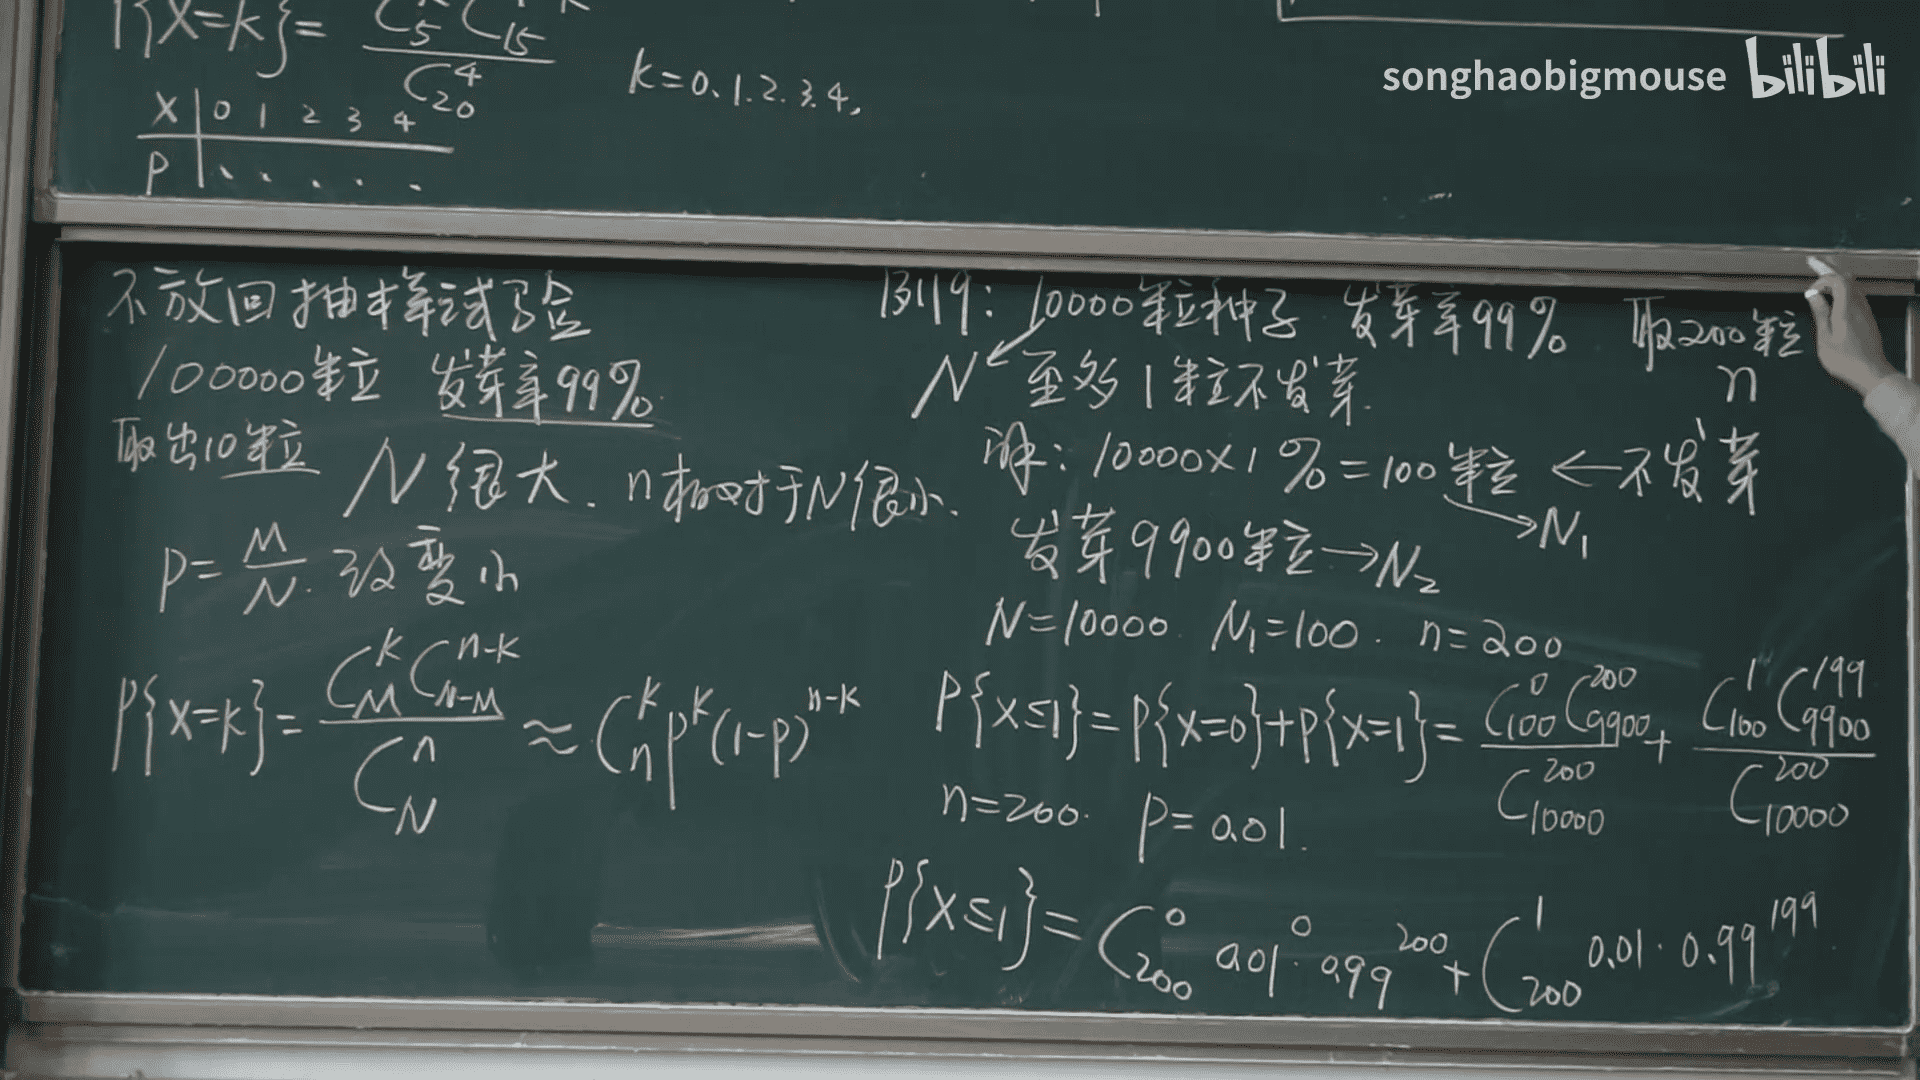 P{X=k}= C₅ᵏ C₁₅⁴⁻ᵏ / C₂₀⁴ k=0.1.2.3.4,
X 0 1 2 3 4
P . . . . .
songhaobigmouse bilibili
不放回抽样试验
100000粒 发芽率99%.
取出10粒 N很大. n相对于N很小.
P=M/N. 改变小
P{X=k}= C_M^k C_{N-M}^{n-k} / C_N^n ≈ C_n^k P^k (1-P)^{n-k}
例19: 10000粒种子 发芽率99% 取200粒
N 至多1粒不发芽. n
解: 10000×1%=100粒 ←不发芽
→N₁
发芽9900粒→N₂
N=10000. N₁=100. n=200
P{X≤1}=P{X=0}+P{X=1}= C_{100}^0 C_{9900}^{200} / C_{10000}^{200} + C_{100}^1 C_{9900}^{199} / C_{10000}^{200}
n=200. P=0.01.
P{X≤1}= C_{200}^0 0.01^0 · 0.99^{200} + C_{200}^1 0.01 · 0.99^{199}